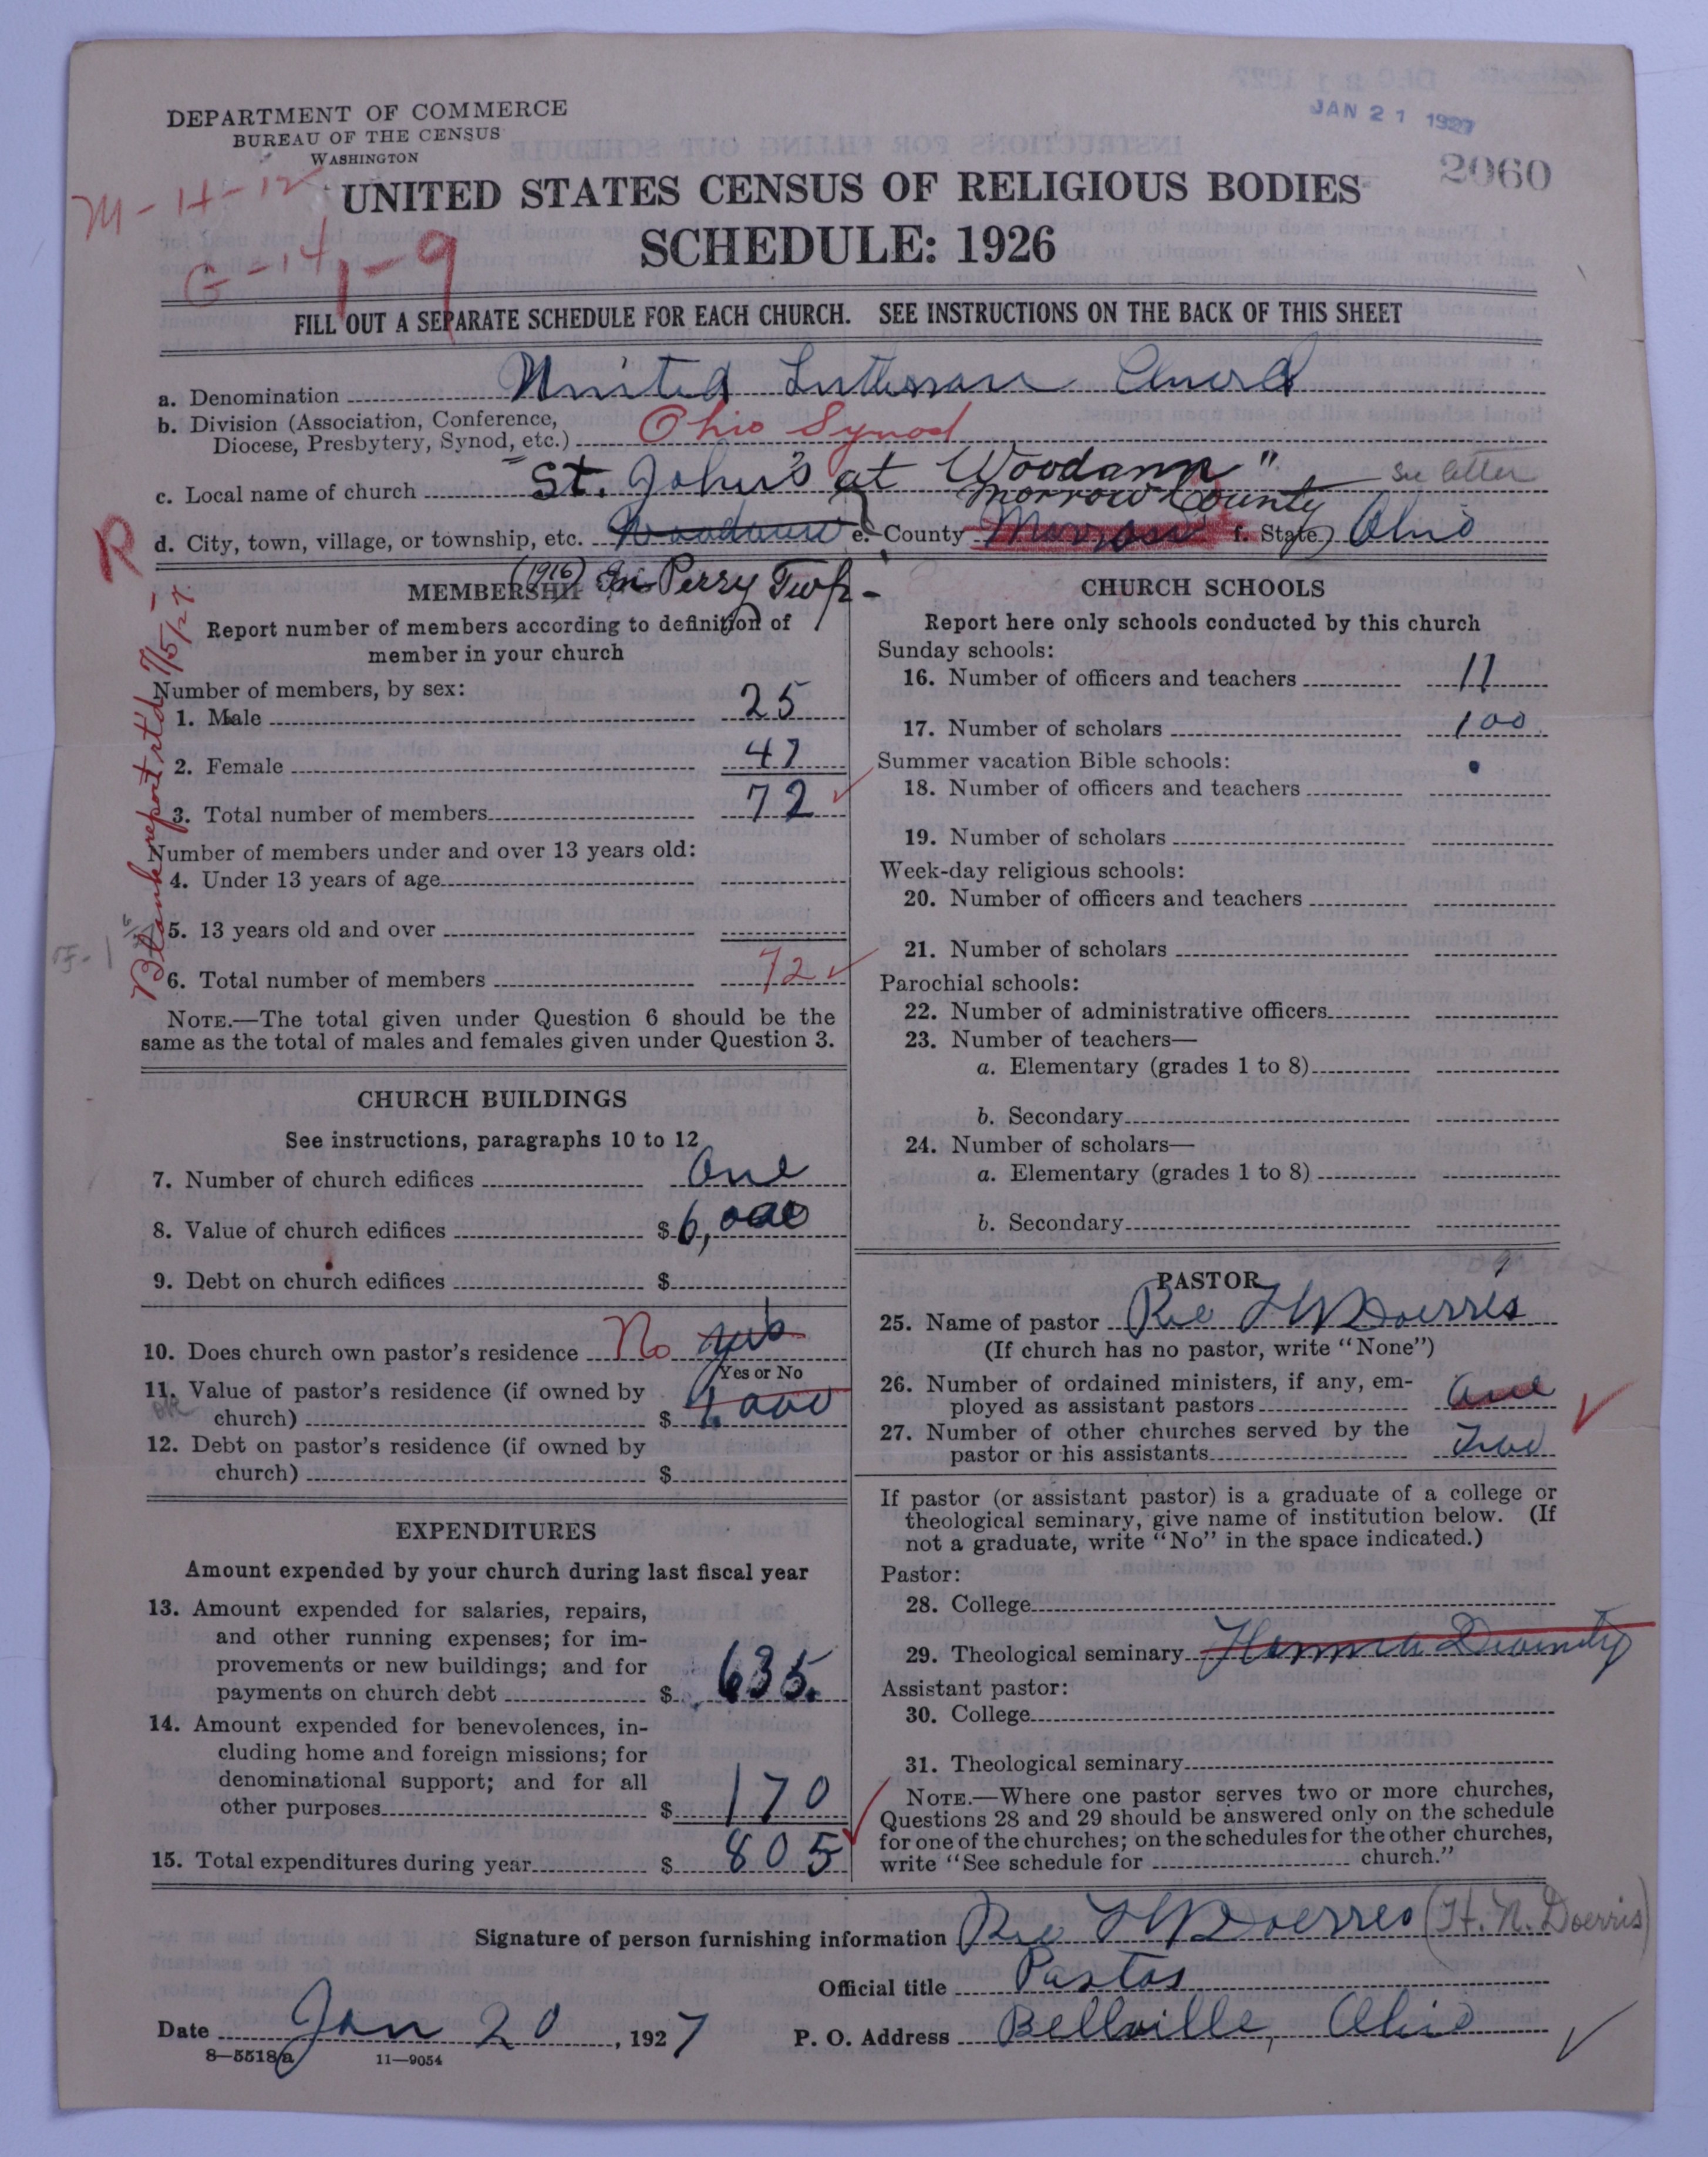 JAN 21 1927
2060
DEPARTMENT OF COMMERCE
BUREAU OF THE CENSUS
WASHINGTON
M-H-12
UNITED STATES CENSUS OF RELIGIOUS BODIES
G-14 1-9
SCHEDULE: 1926
FILL OUT A SEPARATE SCHEDULE FOR EACH CHURCH. SEE INSTRUCTIONS ON THE BACK OF THIS SHEET
a. Denomination United Lutheran Church
b. Division (Association, Conference,
Diocese, Presbytery, Synod, etc.) Ohio Synod
c. Local name of church "St. John's at Woodann" See letter
Morrow County
d. City, town, village, or township, etc. e. County Morrow f. State Ohio
R
Blank report rtd 7/5/27
MEMBERSHIP (1916) In Perry Twp-
Report number of members according to definition of
member in your church
Number of members, by sex:
1. Male 25
2. Female 47
3. Total number of members 72
Number of members under and over 13 years old:
4. Under 13 years of age
5. 13 years old and over
6. Total number of members 72
NOTE.—The total given under Question 6 should be the
same as the total of males and females given under Question 3.
CHURCH BUILDINGS
See instructions, paragraphs 10 to 12
7. Number of church edifices One
8. Value of church edifices $6,000
9. Debt on church edifices $
10. Does church own pastor's residence No yes
Yes or No
11. Value of pastor's residence (if owned by
church) $ 000
12. Debt on pastor's residence (if owned by
church) $
EXPENDITURES
Amount expended by your church during last fiscal year
13. Amount expended for salaries, repairs,
and other running expenses; for im-
provements or new buildings; and for
payments on church debt $ 635.
14. Amount expended for benevolences, in-
cluding home and foreign missions; for
denominational support; and for all
other purposes $ 170
15. Total expenditures during year $ 805
CHURCH SCHOOLS
Report here only schools conducted by this church
Sunday schools:
16. Number of officers and teachers 11
17. Number of scholars 100
Summer vacation Bible schools:
18. Number of officers and teachers
19. Number of scholars
Week-day religious schools:
20. Number of officers and teachers
21. Number of scholars
Parochial schools:
22. Number of administrative officers
23. Number of teachers—
a. Elementary (grades 1 to 8)
b. Secondary
24. Number of scholars—
a. Elementary (grades 1 to 8)
b. Secondary
PASTOR
25. Name of pastor Rev H N Doerris
(If church has no pastor, write "None")
26. Number of ordained ministers, if any, em-
ployed as assistant pastors One
27. Number of other churches served by the
pastor or his assistants Two
If pastor (or assistant pastor) is a graduate of a college or
theological seminary, give name of institution below. (If
not a graduate, write "No" in the space indicated.)
Pastor:
28. College
29. Theological seminary Hamma Divinity
Assistant pastor:
30. College
31. Theological seminary
NOTE.—Where one pastor serves two or more churches,
Questions 28 and 29 should be answered only on the schedule
for one of the churches; on the schedules for the other churches,
write "See schedule for church."
Signature of person furnishing information Rev H N Doerres (H. N. Doerris)
Official title Pastor
Date Jan 20, 1927 P. O. Address Bellville, Ohio
8—5518a 11—9054